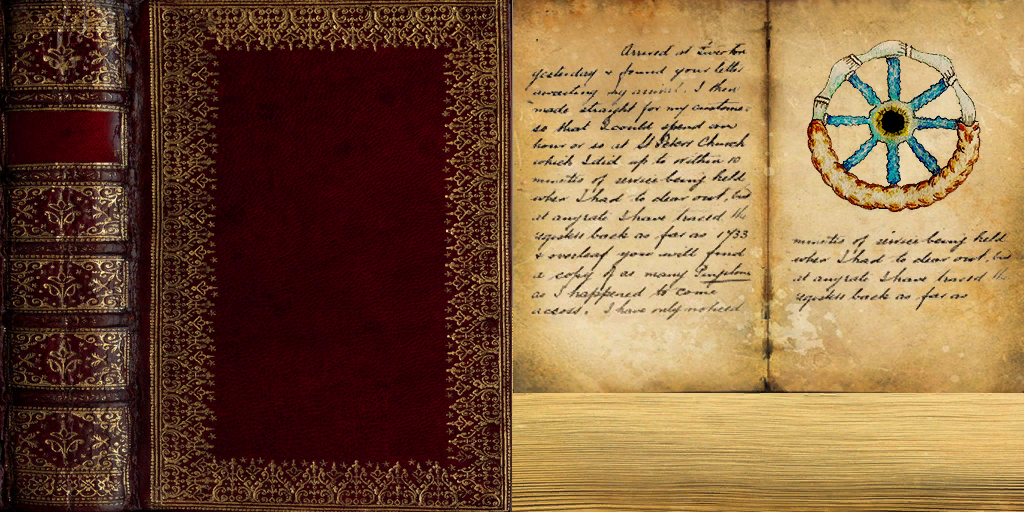 Arrived at Tiverton
yesterday & found your letter
awaiting my arrival. I then
made straight for my customer
so that I could spend an
hour or so at St Peters Church
which I did up to within 10
minutes of service being held
when I had to clear out, but
at anyrate I have traced the
registers back as far as 1733
& overleaf you will find
a copy of as many
as I happened to come
across. I have only noticed
minutes of service being held
when I had to clear out, but
at anyrate I have traced the
registers back as far as